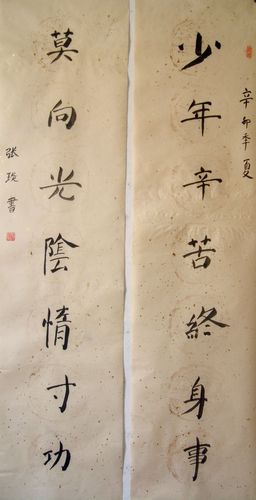 辛卯季夏
少年辛苦終身事
莫向光陰惰寸功
張珑書